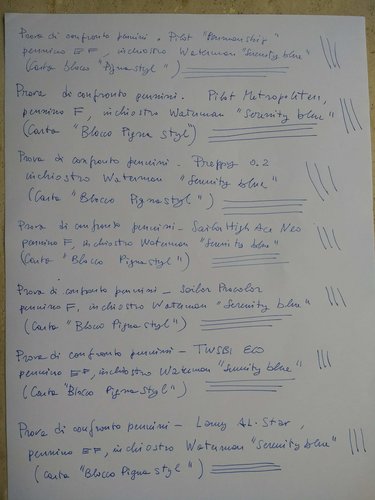 Prova di confronto pennini. Pilot "Penmanship"
pennino EF, inchiostro Waterman "Serenity blue"
(Carta blocco "Pigna styl")
Prova di confronto pennini. Pilot Metropolitan,
pennino F, inchiostro Waterman "Serenity blue"
(Carta "Blocco Pigna styl")
Prova di confronto pennini - Preppy 0.2
inchiostro Waterman "Serenity blue"
(Carta "Blocco Pigna styl")
Prova di confronto pennini - Sailor High Ace Neo
pennino F, inchiostro Waterman "Serenity blue"
(Carta "Blocco Pigna styl")
Prova di confronto pennini - Sailor Procolor
pennino F, inchiostro Waterman "Serenity blue"
(Carta "Blocco Pigna styl")
Prova di confronto pennini - TWSBI ECO
pennino EF, inchiostro Waterman "Serenity blue"
(Carta "Blocco Pigna styl")
Prova di confronto pennini - Lamy AL-Star,
pennino EF, inchiostro Waterman "Serenity blue"
(Carta "Blocco Pigna styl")